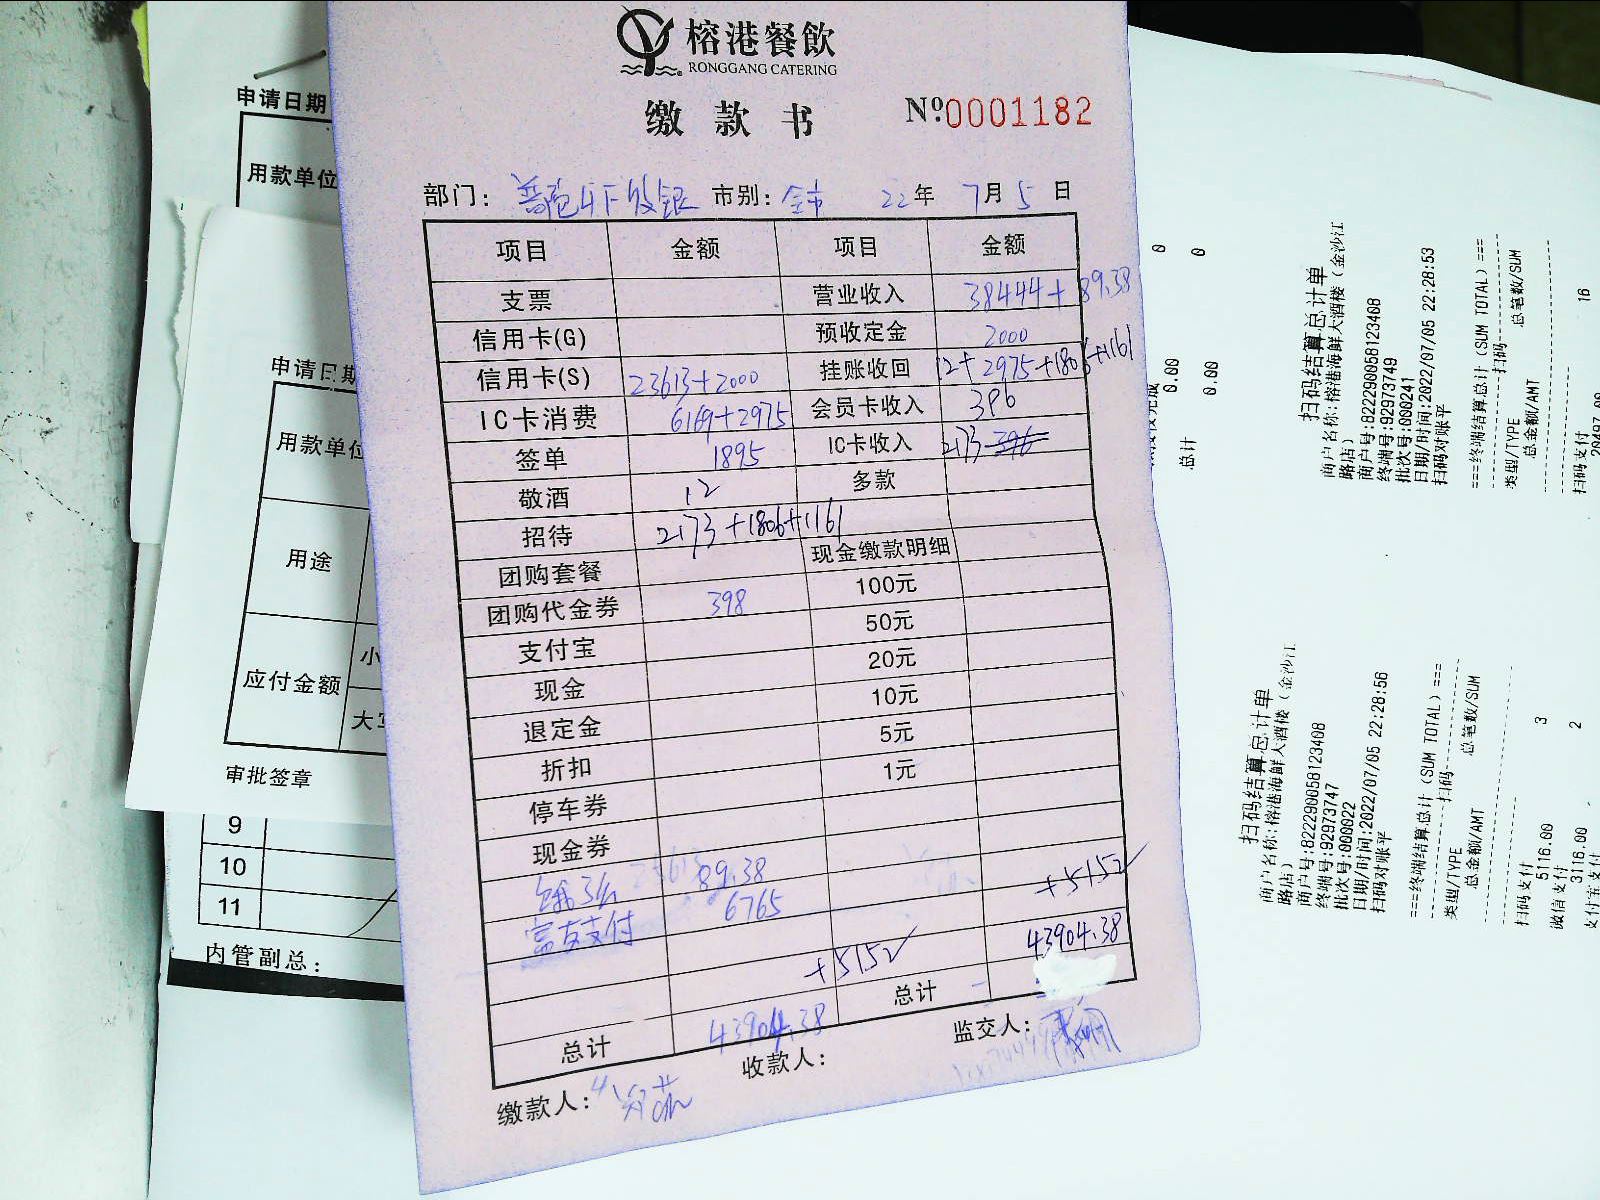 榕港餐飲
RONGGANG CATERING
缴款书 Nº.0001182
部门： 市别：全市 22年7月5日
项目 金额 项目 金额
支票 营业收入 38444+89.38
信用卡(G) 预收定金 2000
信用卡(S) 23613+2000 挂账收回 12+2975+1806+1161
IC卡消费 6169+2975 会员卡收入 396
签单 1895 IC卡收入 2173
敬酒 12 多款
招待 2173+1806+1161
团购套餐 现金缴款明细
团购代金券 398 100元
支付宝 50元
现金 20元
退定金 10元
折扣 5元
停车券 1元
现金券
89.38
富友支付 6765 +5152
+5152 43904.38
总计
总计 43904.38
缴款人： 收款人： 监交人：
申请日期
用款单位
申请日期
用款单位
用途
应付金额 小
大写
审批签章
9
10
11
内管副总：
0
0
0.00
0.00
总计
扫码结算总计单
商户名称:榕港海鲜大酒楼（金沙江
路店）
商户号:822290058123408
终端号:92973749
批次号:000241
日期/时间:2022/07/05 22:28:53
扫码对账平
===终端结算总计（SUM TOTAL）===
扫码
类型/TYPE 总笔数/SUM
总金额/AMT
扫码支付 16
扫码结算总计单
商户名称:榕港海鲜大酒楼（金沙江
路店）
商户号:822290058123408
终端号:92973747
批次号:000022
日期/时间:2022/07/05 22:28:56
扫码对账平
===终端结算总计（SUM TOTAL）===
扫码
类型/TYPE 总笔数/SUM
总金额/AMT
扫码支付 3
5116.00
微信支付 2
3116.00
支付宝支付